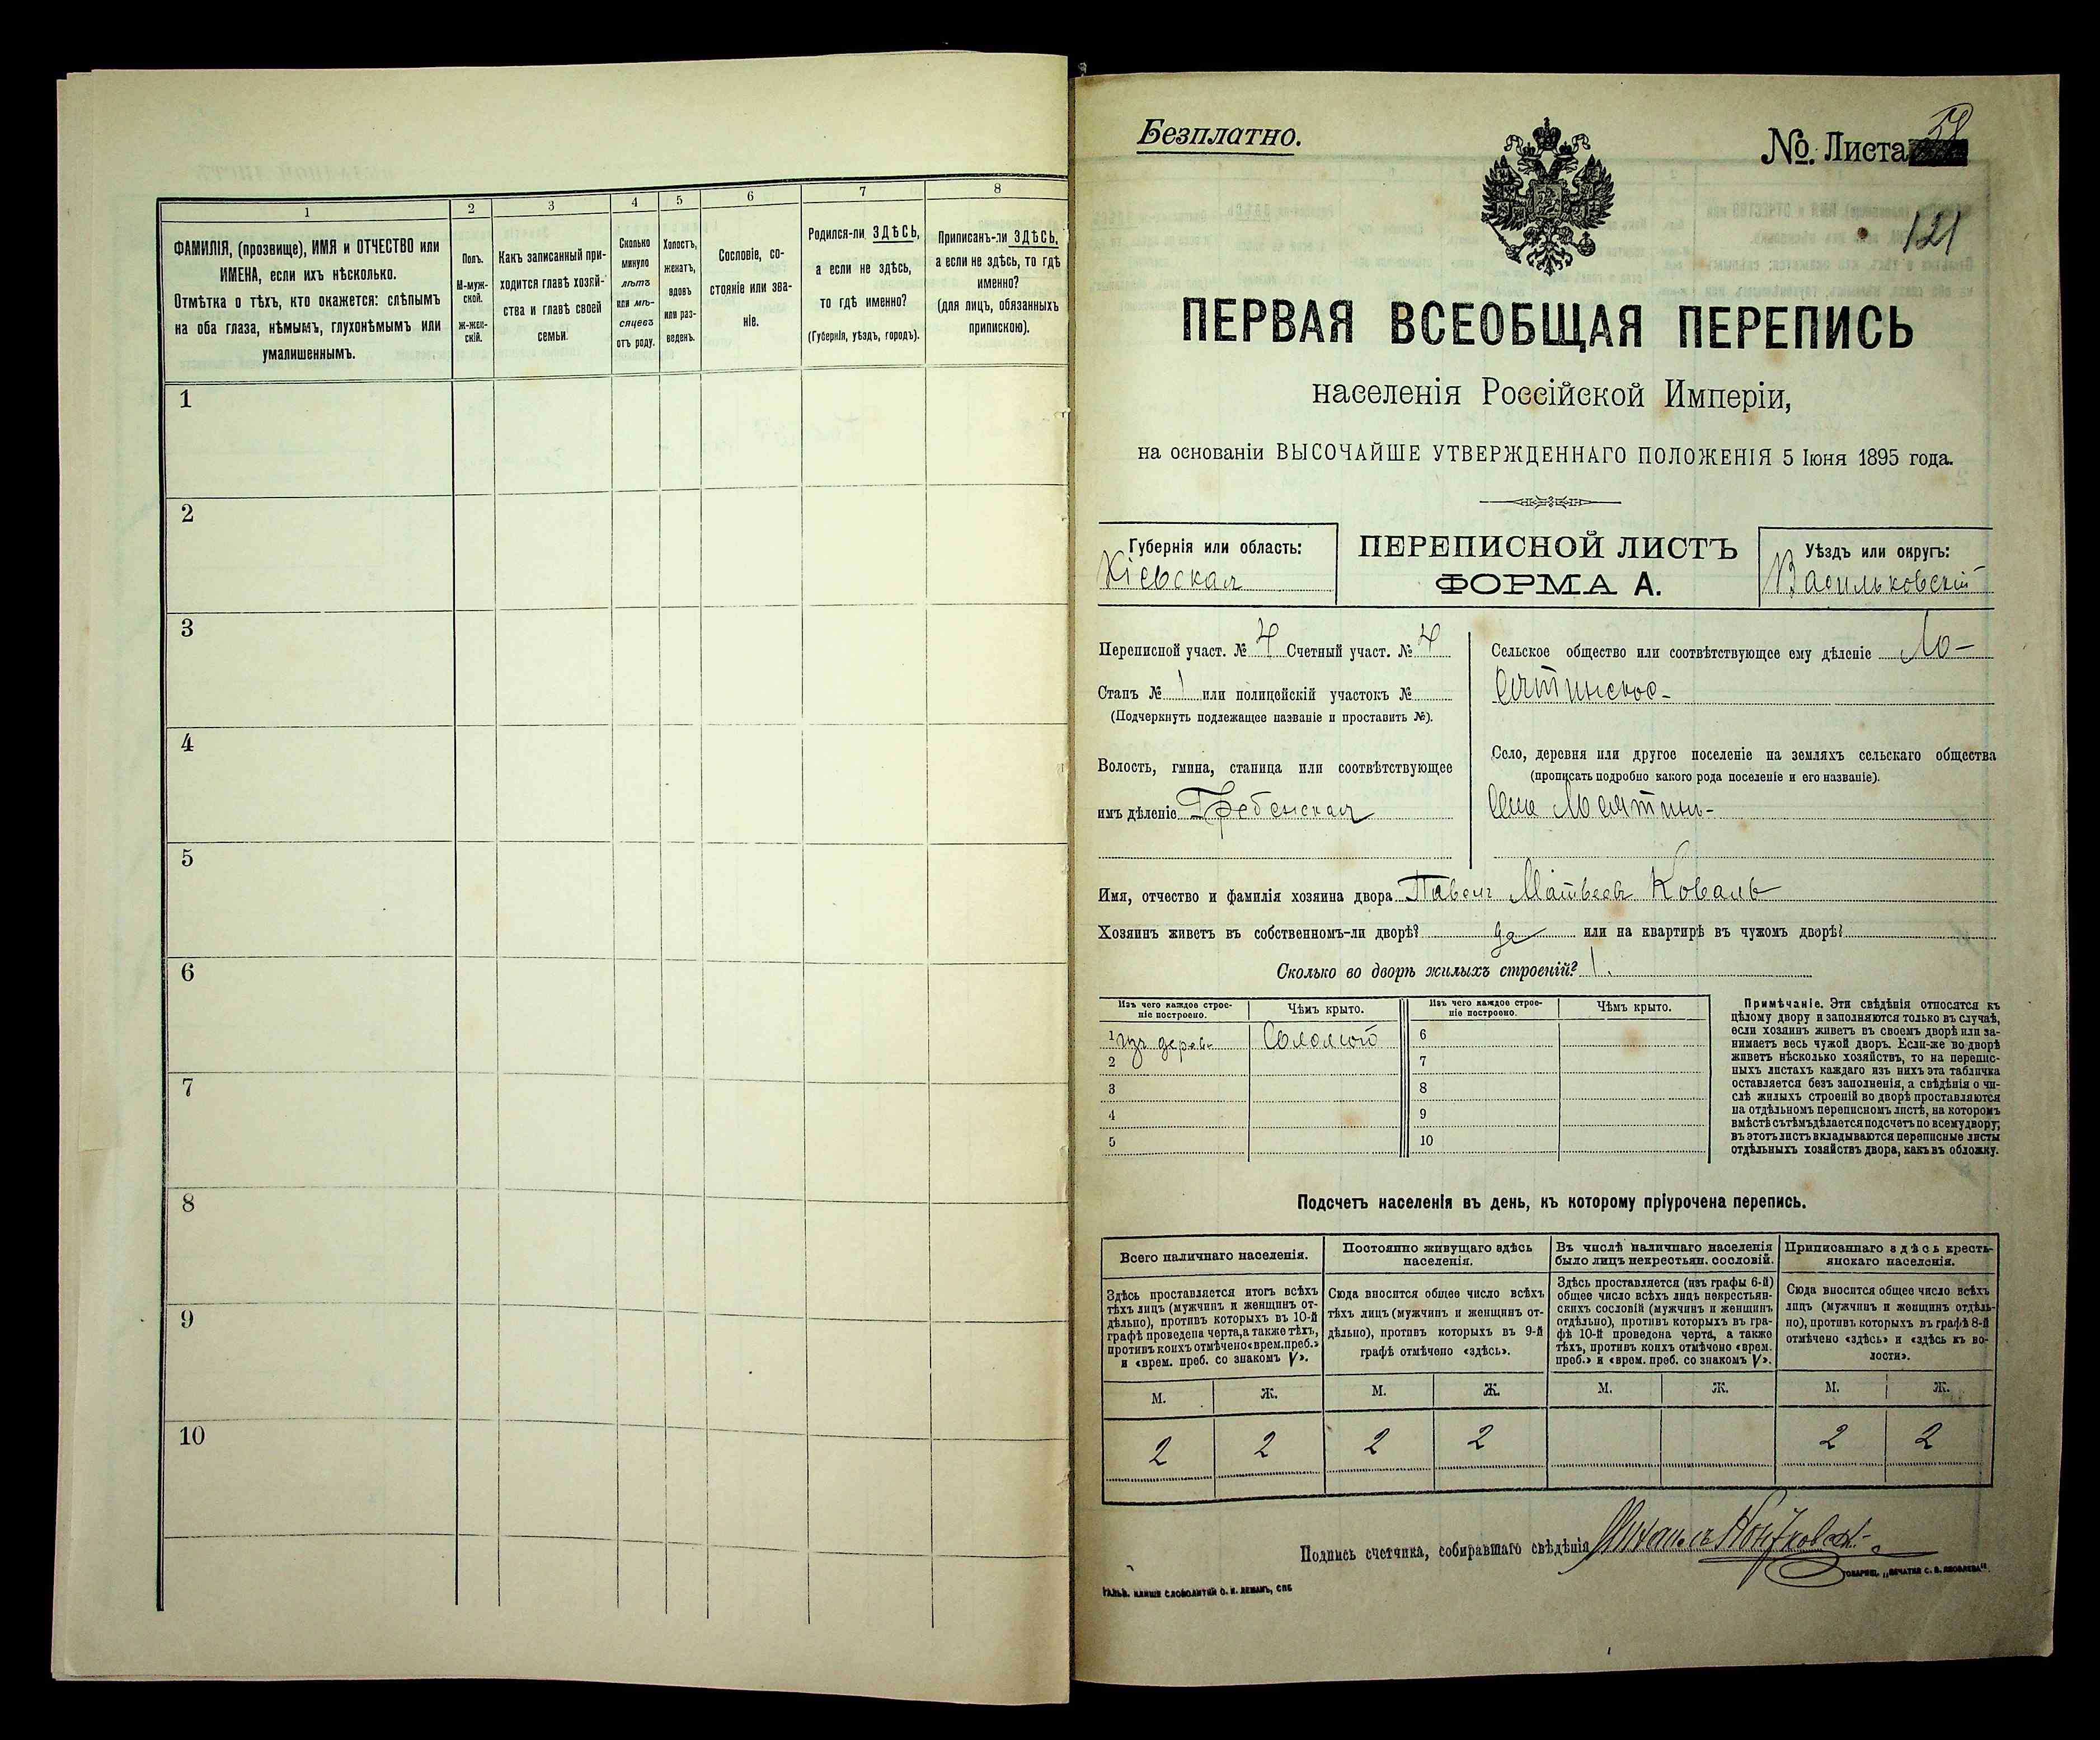 1
2
3
4
5
6
7
8
ФАМИЛІЯ, (прозвище), ИМЯ и ОТЧЕСТВО или
ИМЕНА, если ихъ нѣсколько.
Отмѣтка о тѣхъ, кто окажется: слѣпымъ
на оба глаза, нѣмымъ, глухонѣмымъ или
умалишеннымъ.
Полъ.
М-муж-
ской.
Ж-жен-
скій.
Какъ записанный при-
ходится главѣ хозяй-
ства и главѣ своей
семьи.
Сколько
минуло
лѣтъ
или мѣ-
сяцевъ
отъ роду.
Холостъ,
женатъ,
вдовъ
или раз-
веденъ.
Сословіе, со-
стояніе или зва-
ніе.
Родился-ли ЗДѢСЬ,
а если не здѣсь,
то гдѣ именно?
(Губернія, уѣздъ, городъ).
Приписанъ-ли ЗДѢСЬ,
а если не здѣсь, то гдѣ
именно?
(для лицъ, обязанныхъ
припискою).
1
2
3
4
5
6
7
8
9
10
Безплатно.
№. Листа 58
121
ПЕРВАЯ ВСЕОБЩАЯ ПЕРЕПИСЬ
населенія Россійской Имперіи,
на основаніи ВЫСОЧАЙШЕ УТВЕРЖДЕННАГО ПОЛОЖЕНІЯ 5 Іюня 1895 года.
Губернія или область:
Кіевская
ПЕРЕПИСНОЙ ЛИСТЪ
ФОРМА А.
Уѣздъ или округъ:
Васильковскій
Переписной участ. № 4 Счетный участ. № 4
Станъ № 1 или полицейскій участокъ №
(Подчеркнуть подлежащее названіе и проставить №).
Волость, гмина, станица или соотвѣтствующее
имъ дѣленіе Гребенская
Сельское общество или соотвѣтствующее ему дѣленіе Ло-
сятинское
Село, деревня или другое поселеніе на земляхъ сельскаго общества
(прописать подробно какого рода поселеніе и его названіе).
Село Лосятин
Имя, отчество и фамилія хозяина двора Павелъ Матвѣевъ Коваль
Хозяинъ живетъ въ собственномъ-ли дворѣ? да или на квартирѣ въ чужомъ дворѣ?
Сколько во дворѣ жилыхъ строеній? 1.
Изъ чего каждое строе-
ніе построено.
Чѣмъ крыто.
Изъ чего каждое строе-
ніе построено.
Чѣмъ крыто.
1 изъ дерев. Соломой
2
3
4
5
6
7
8
9
10
Примѣчаніе. Эти свѣдѣнія относятся къ
цѣлому двору и заполняются только въ случаѣ,
если хозяинъ живетъ въ своемъ дворѣ или за-
нимаетъ весь чужой дворъ. Если-же во дворѣ
живетъ нѣсколько хозяйствъ, то на перепис-
ныхъ листахъ каждаго изъ нихъ эта табличка
оставляется безъ заполненія, а свѣдѣнія о чи-
слѣ жилыхъ строеній во дворѣ проставляются
на отдѣльномъ переписномъ листѣ, на которомъ
вмѣстѣ съ тѣмъ дѣлается подсчетъ по всему двору;
въ этотъ листъ вкладываются переписные листы
отдѣльныхъ хозяйствъ двора, какъ въ обложку.
Подсчетъ населенія въ день, къ которому пріурочена перепись.
Всего наличнаго населенія.
Здѣсь проставляется итогъ всѣхъ
тѣхъ лицъ (мужчинъ и женщинъ от-
дѣльно), противъ которыхъ въ 10-й
графѣ проведена черта, а также тѣхъ,
противъ коихъ отмѣчено «врем. преб.»
и «врем. преб. со знакомъ V».
Постоянно живущаго здѣсь
населенія.
Сюда вносится общее число всѣхъ
тѣхъ лицъ (мужчинъ и женщинъ от-
дѣльно), противъ которыхъ въ 9-й
графѣ отмѣчено «здѣсь».
Въ числѣ наличнаго населенія
было лицъ некрестьян. сословій.
Здѣсь проставляется (изъ графы 6-й)
общее число всѣхъ лицъ некрестьян-
скихъ сословій (мужчинъ и женщинъ
отдѣльно), противъ которыхъ въ гра-
фѣ 10-й проведона черта, а также
тѣхъ, противъ коихъ отмѣчено «врем.
преб.» и «врем. преб. со знакомъ V».
Приписаннаго здѣсь кресть-
янскаго населенія.
Сюда вносится общее число всѣхъ
лицъ (мужчинъ и женщинъ отдѣль-
но), противъ которыхъ въ графѣ 8-й
отмѣчено «здѣсь» и «здѣсь въ во-
лости».
М. Ж. М. Ж. М. Ж. М. Ж.
2 2 2 2 2 2
Подпись счетчика, собиравшаго свѣдѣнія
ГАЛЬВ. КЛИШЕ СЛОВОЛИТНИ О. И. ЛЕМАНЪ, СПБ
ТОВАРИЩ. „ПЕЧАТНЯ С. П. ЯКОВЛЕВА“.